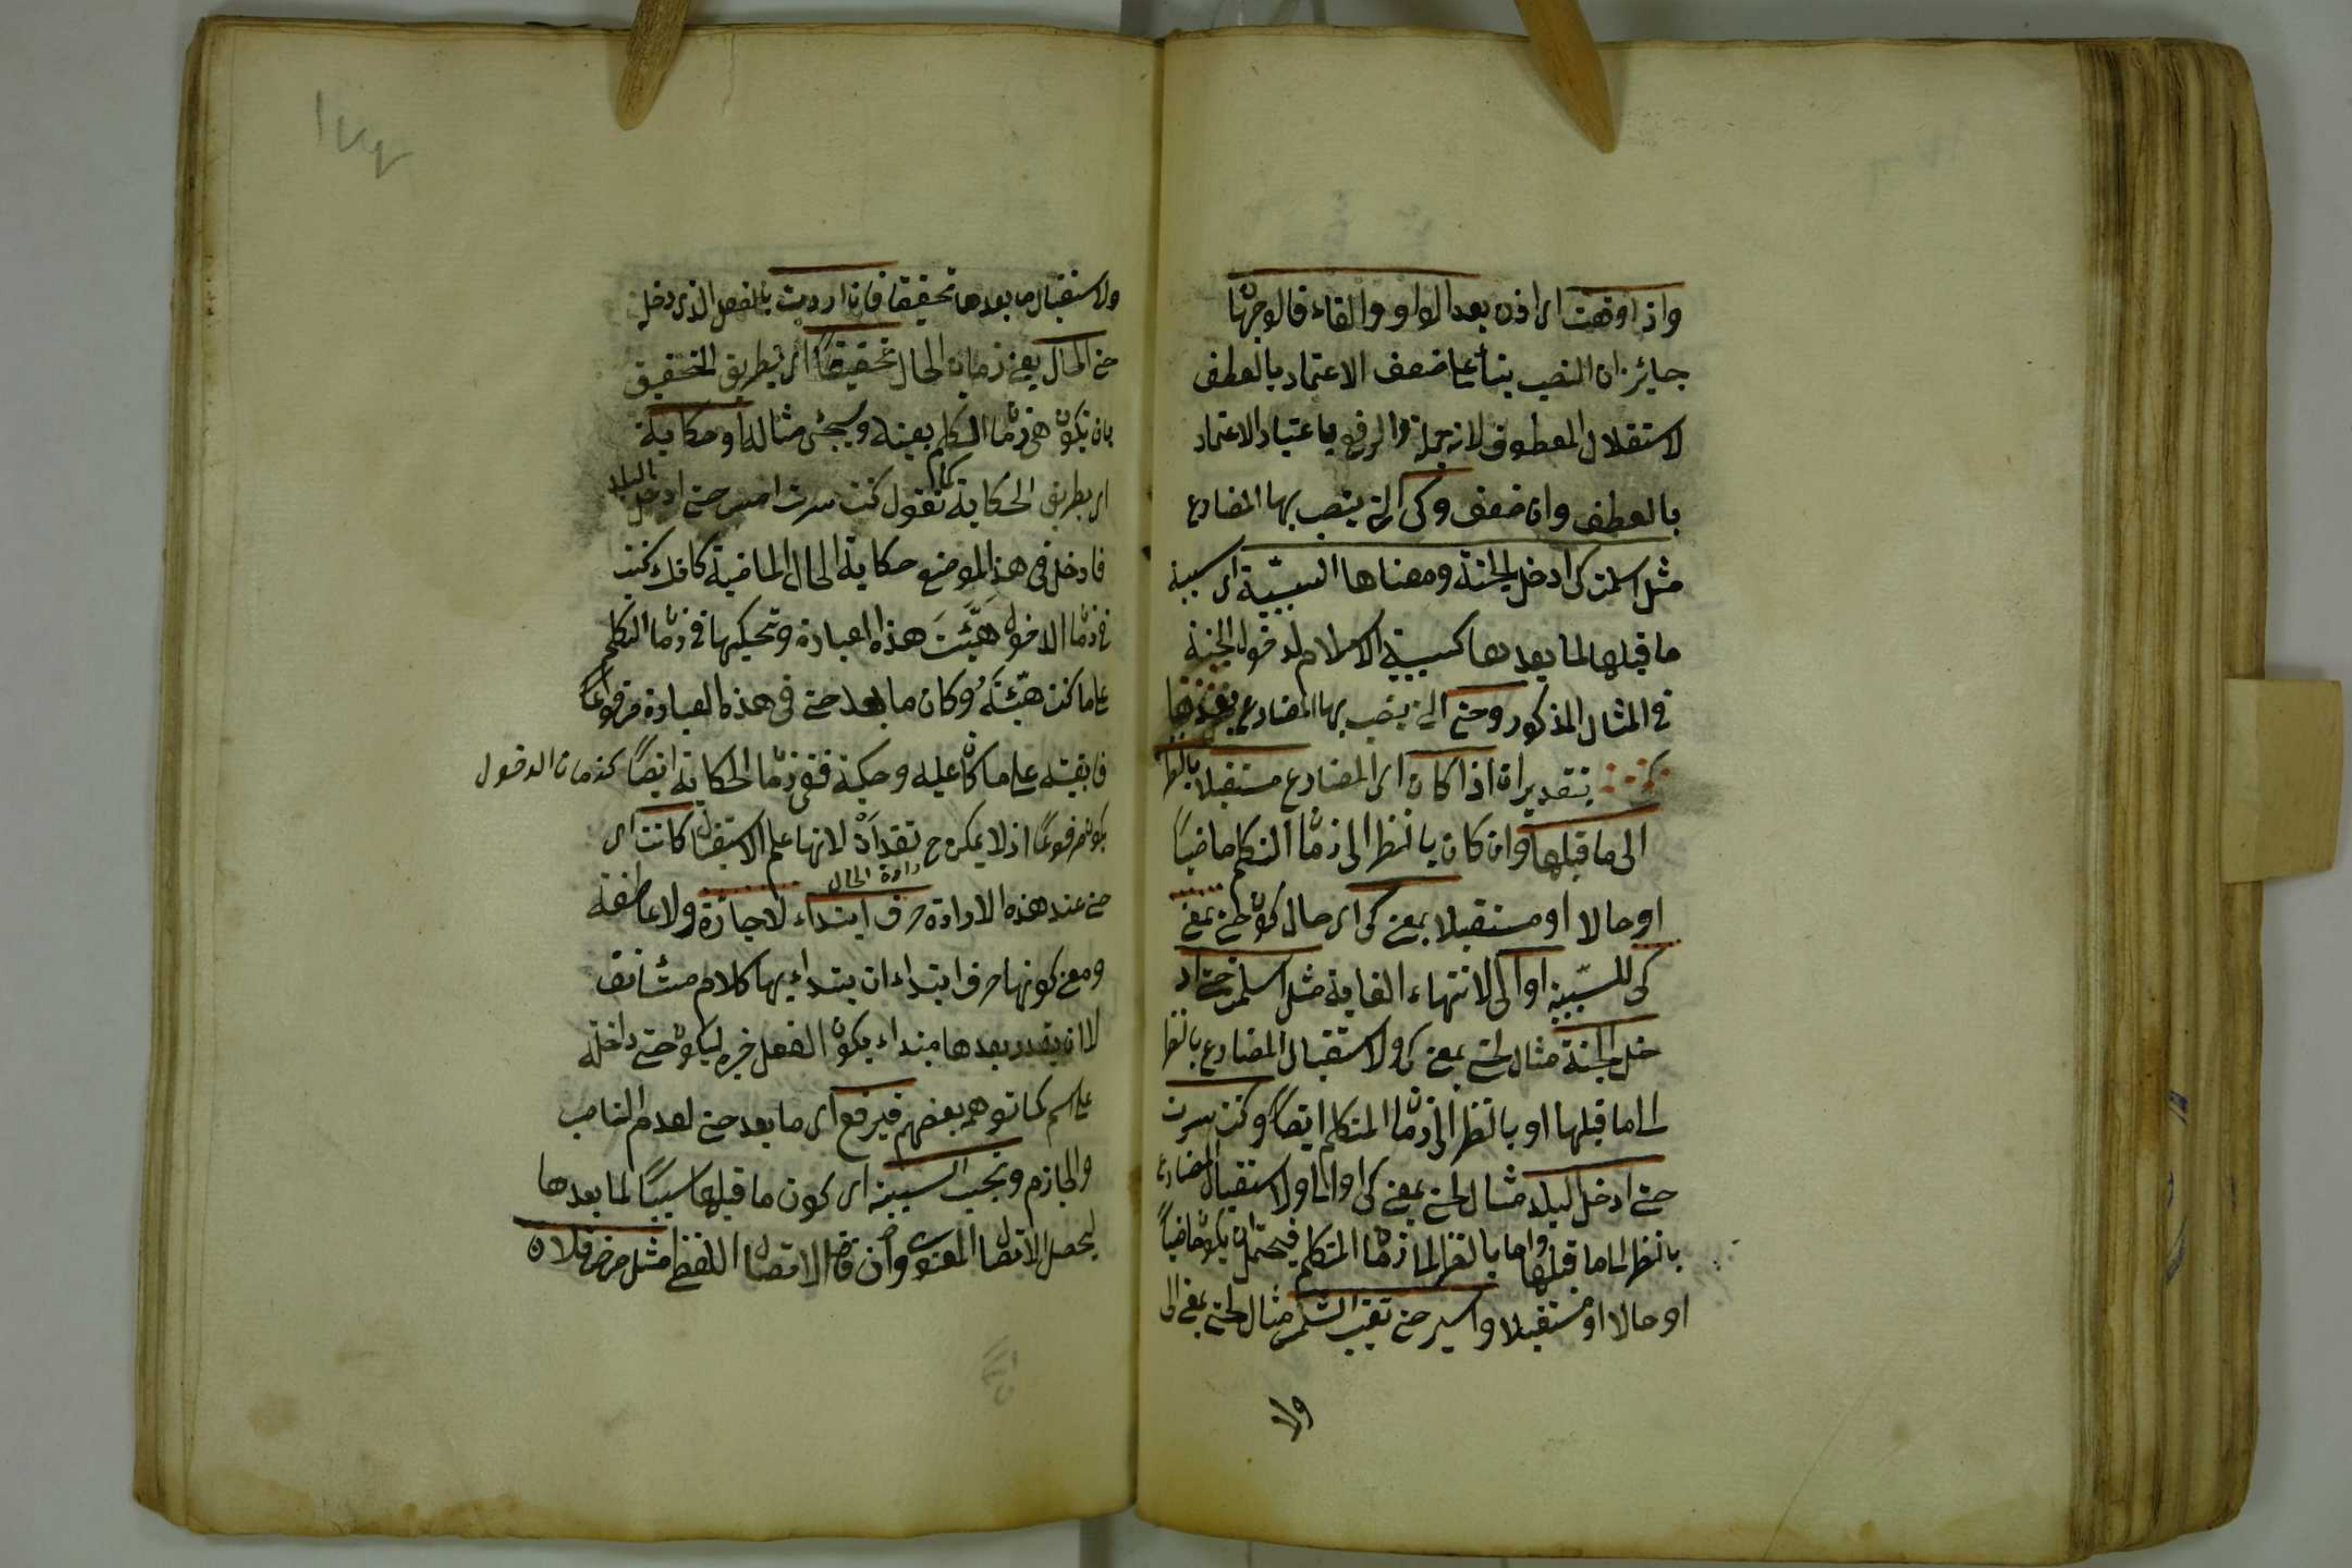 واذا وقعت اى اذن بعد الواو والفاء فالوجهان
جايزان النصب بنأ على ضعف الاعتماد بالعطف
لاستقلال المعطوف لانه جملة والرفع باعتبار الاعتماد
بالعطف وان ضعف وكى التى ينصب بها المضارع
مثل اسلمت كى ادخل الجنة ومعناها السببيّة اى سببية
ما قبلها لما بعدها كسببية الاسلام لدخول الجنة
فى المثال المذكور وحتى التى ينصب بها المضارع
بتقديران اذا كان اى المضارع مستقبلا بالنظر
الى ما قبلها وان كان بالنظر الى زمان التكلم ماضيًا
او حالا او مستقبلا بمعنى كى اى حال كون حتى بمعنى
كى للسّببية او الى لانتهاء الغاية مثل اسلمت حتى اد
خل الجنة مثال لحتى بمعنى كى ولاستقبال المضارع بالنظر
الى ما قبلها او بالنظر الى زمان المتكلم ايضًا وكنت سرت
حتى ادخل البلد مثال لحتى بمعنى كى او الى ولاستقبال المضارع
بالنظر الى ما قبلها واما بالنظر الى زمان المتكلم فيحتمل ان يكون ماضيًا
او حالا او مستقبلا واسير حتى تغيب الشمس مثال لحتى بمعنى الى
ولا
١٧٧
ولاستقبال ما بعدها تحقيقا فان اردت بالفعل الذى دخل
حتى الحال يعنى زمان الحال تحقيقًا اى بطريق التحقيق
بان يكون هى زمان التكلم بعينه وسيجئ مثاله او حكاية
اى بطريق الحكاية كما تقول كنت سرت امس حتى ادخل البلد
فادخل فى هذا الموضع حكاية الحال الماضية كانك كنت
فى زمان الدخول هَيَّئتَ هذه العبارة وتحكيها فى زمان التكلم
على ما كنت هيّئته وكان ما بعد حتى فى هذه العبارة مرفوعًا
فابقيته على ما كان عليه وحكيته ففى زمان الحكاية ايضًا كزمان الدخول
يكون مرفوعًا اذ لا يمكن ح تقدير ان لانها علم الاستقبال كانت اى
حتى عند هذه الارادة ارادة الحال حرف ابتداء لا جارّة ولا عاطفة
ومعنى كونها حرف ابتداء ان يبتداء بها كلام مستأنف
لا ان يقدر بعدها مبتداء يكون الفعل خبره ليكون حتى داخلة
على اسم كما توهم بعضهم فيرفع اى ما بعد حتى لعدم الناصب
والجازم وتجب السببية اى كون ما قبلها سببًا لما بعدها
ليحصل الاتصال المعنوى وان فات الاتصال اللفظى مثل مرض فلان